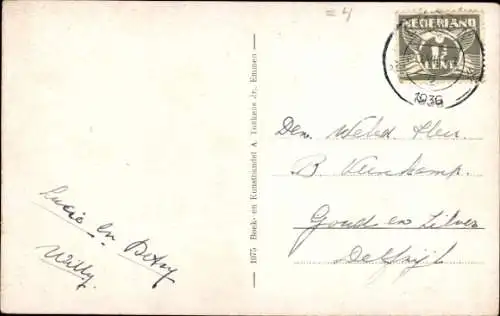 = 4
NEDERLAND
1½
CENT
1936
Den Weled. Heer.
B. Veenkamp.
Goud en Zilver
Delfzijl.
Lucie en Betsy
Willy.
1975 Boek- en Kunsthandel A. Tonkens Jr., Emmen